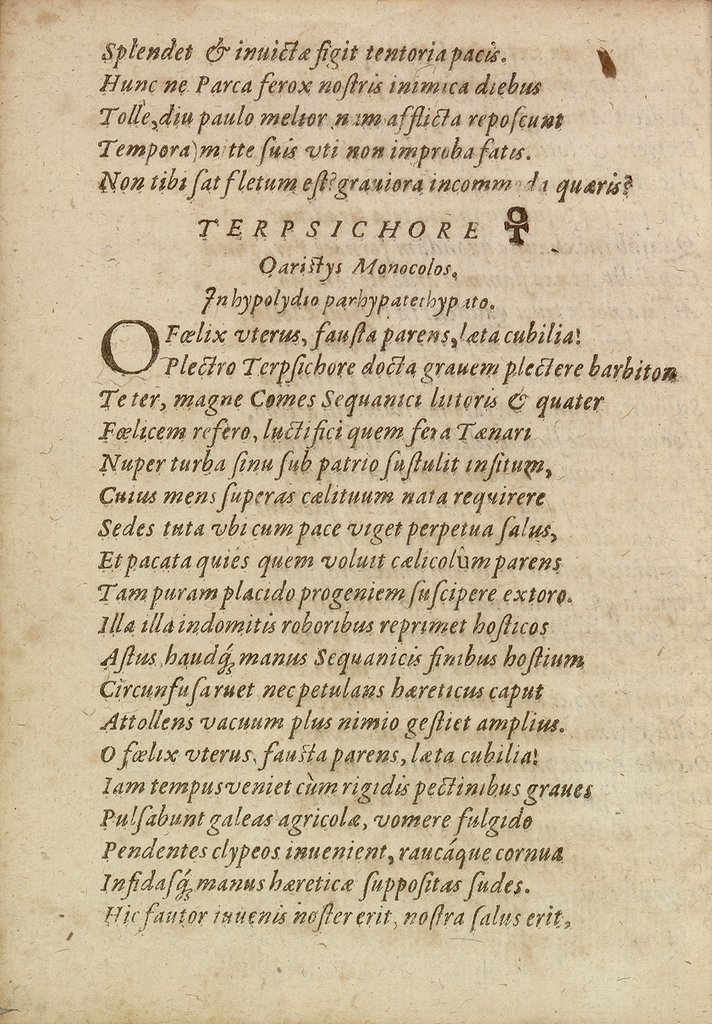 Splendet & invictæ figit tentoria pacis.
Hunc ne Parca ferox noſtris inimica diebus
Tolle, diu paulo melior nam afflicta repoſcunt
Tempora) mitte ſuis vti non improba fatis.
Non tibi ſat fletum eſt? grauiora incommoda quæris?
TERPSICHORE ☥
Oariſtys Monocolos.
In hypolydio parhypatethypato.
O Fœlix vterus, fauſta parens, læta cubilia!
Plectro Terpſichore docta grauem plectere barbiton
Te ter, magne Comes Sequanici littoris & quater
Fœlicem refero, luctifici quem fera Tænari
Nuper turba ſinu ſub patrio ſuſtulit inſitum,
Cuius mens ſuperas cælituum nata requirere
Sedes tuta vbi cum pace viget perpetua ſalus,
Et pacata quies quem voluit cælicolûm parens
Tam puram placido progeniem ſuſcipere ex toro.
Illa illa indomitis roboribus reprimet hoſticos
Aſtus haudq́; manus Sequanicis finibus hoſtium
Circunfuſa ruet nec petulans hæreticus caput
Attollens vacuum plus nimio geſtiet amplius.
O fœlix vterus, fauſta parens, læta cubilia!
Iam tempus veniet cùm rigidis pectinibus graues
Pulſabunt galeas agricolæ, vomere fulgido
Pendentes clypeos inuenient, raucáque cornua
Infidaſq́; manus hæreticæ ſuppoſitas ſudes.
Hic fautor iuuenis noſter erit, noſtra ſalus erit,